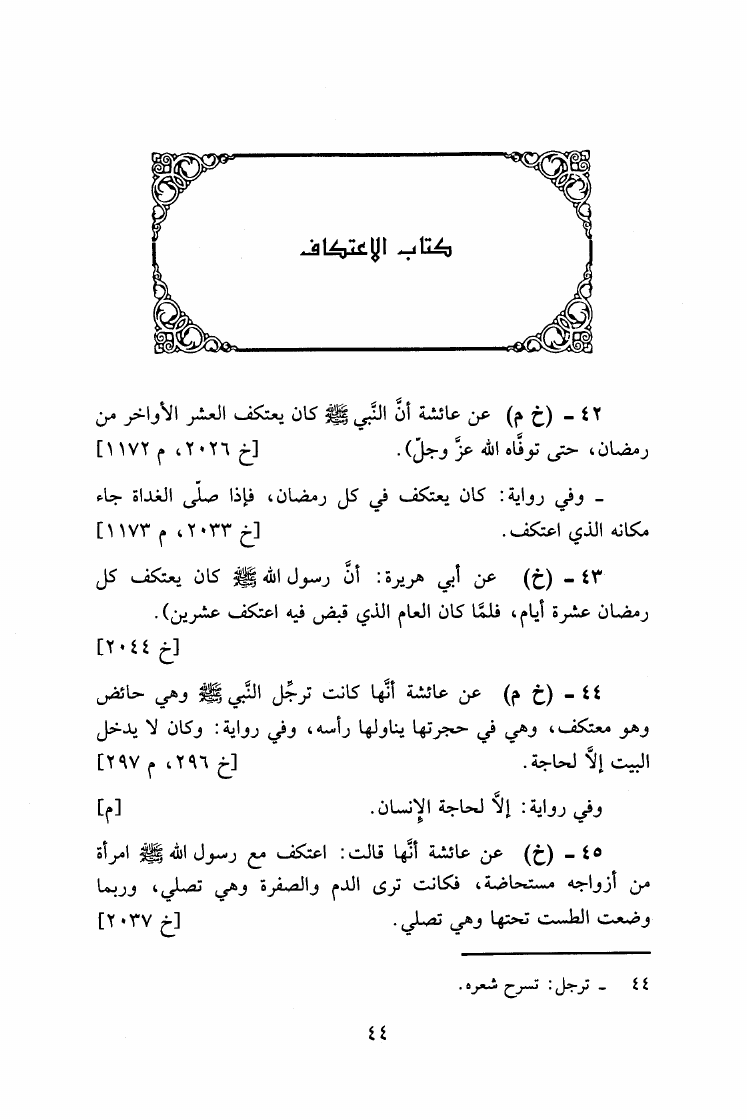 كتاب الاعتكاف
٤٢ - (خ م) عن عائشة أنَّ النَّبي ﷺ كان يعتكف العشر الأواخر من
رمضان، حتى توفَّاه الله عزَّ وجلّ). [خ ٢٠٢٦، م ١١٧٢]
- وفي رواية: كان يعتكف في كل رمضان، فإذا صلّى الغداة جاء
مكانه الذي اعتكف. [خ ٢٠٣٣، م ١١٧٣]
٤٣ - (خ) عن أبي هريرة: أنَّ رسول الله ﷺ كان يعتكف كل
رمضان عشرة أيام، فلمَّا كان العام الذي قبض فيه اعتكف عشرين).
[خ ٢٠٤٤]
٤٤ - (خ م) عن عائشة أنَّها كانت ترجِّل النَّبي ﷺ وهي حائض
وهو معتكف، وهي في حجرتها يناولها رأسه، وفي رواية: وكان لا يدخل
البيت إلَّا لحاجة. [خ ٢٩٦، م ٢٩٧]
وفي رواية: إلَّا لحاجة الإِنسان. [م]
٤٥ - (خ) عن عائشة أنَّها قالت: اعتكف مع رسول الله ﷺ امرأة
من أزواجه مستحاضة، فكانت ترى الدم والصفرة وهي تصلي، وربما
وضعت الطست تحتها وهي تصلي. [خ ٢٠٣٧]
٤٤ - ترجل: تسرح شعره.
٤٤